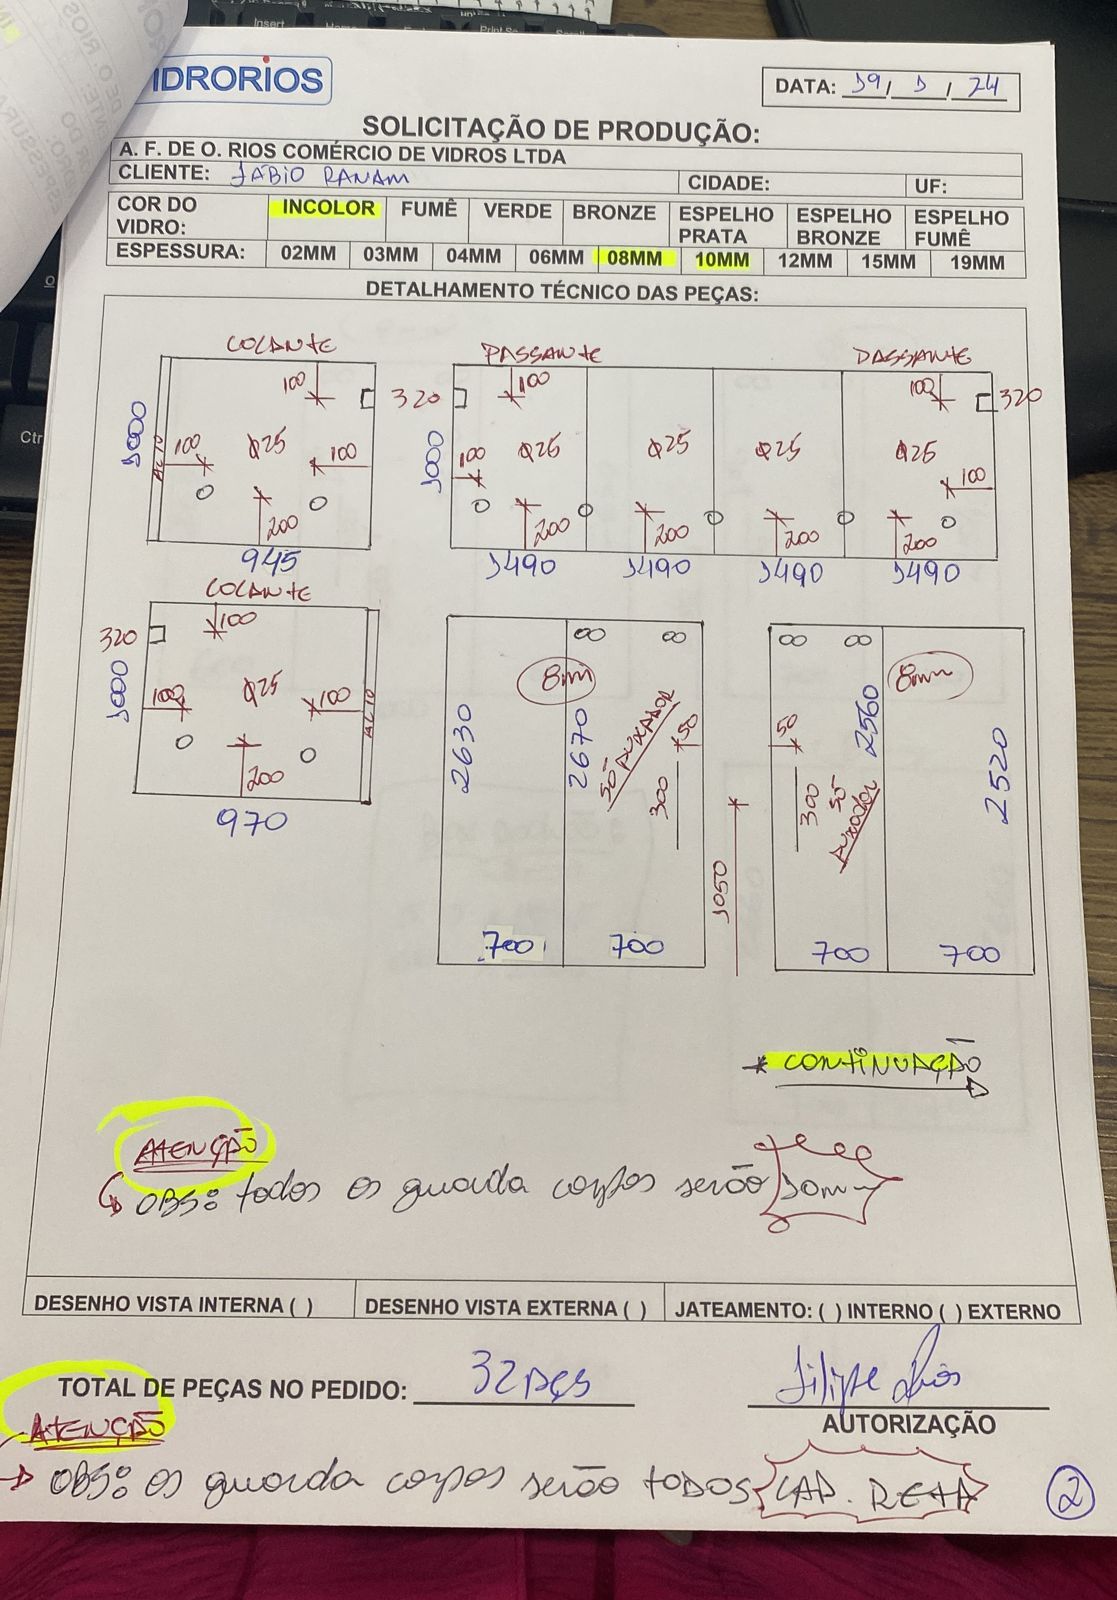 IDRORIOS
DATA: 19/ 1 / 24
SOLICITAÇÃO DE PRODUÇÃO:
A. F. DE O. RIOS COMÉRCIO DE VIDROS LTDA
CLIENTE: FÁBIO RANAM CIDADE: UF:
COR DO VIDRO: INCOLOR FUMÊ VERDE BRONZE ESPELHO PRATA ESPELHO BRONZE ESPELHO FUMÊ
ESPESSURA: 02MM 03MM 04MM 06MM 08MM 10MM 12MM 15MM 19MM
DETALHAMENTO TÉCNICO DAS PEÇAS:
COLANTE
100
1000
AL 10
100
Φ25
100
200
945
PASSANTE PASSANTE
320 100 100 320
1000
100 Φ25 Φ25 Φ25 Φ25 100
200 200 200 200
1490 1490 1490 1490
COLANTE
320 100
1000
100 Φ25 100
AL 10
200
970
8mm
2630 2670
50 PUXADOR
50
300
1050
700 700
8mm
50
2560
2520
300
50 PUXADOR
700 700
* CONTINUAÇÃO
ATENÇÃO
OBS: todos os guarda corpos serão 10mm
DESENHO VISTA INTERNA ( ) DESENHO VISTA EXTERNA ( ) JATEAMENTO: ( ) INTERNO ( ) EXTERNO
TOTAL DE PEÇAS NO PEDIDO: 32 pçs Filipe Rios
AUTORIZAÇÃO
ATENÇÃO
OBS: os guarda corpos serão TODOS LAP. RETA
2